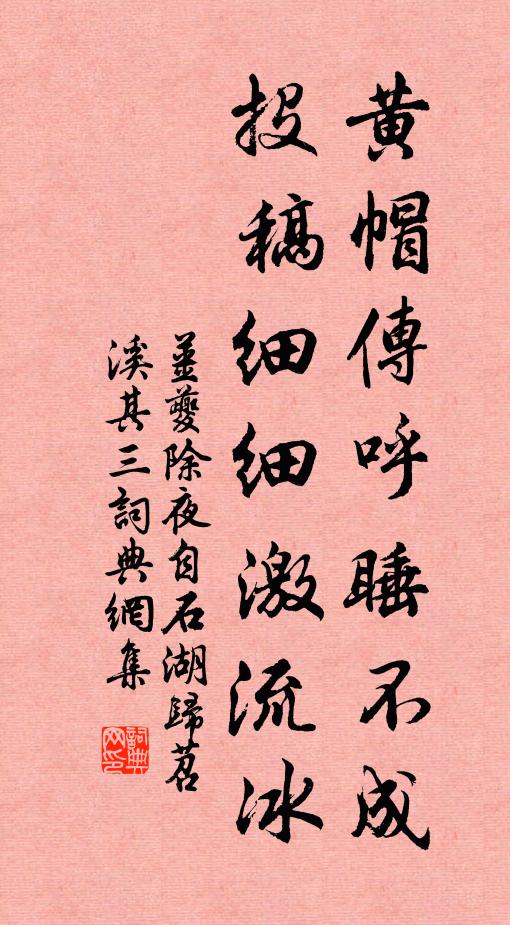 黄帽傳呼睡不成
投稿細細激流冰
姜夔除夜自石湖歸苕
溪其三詞典網集
詞典网印